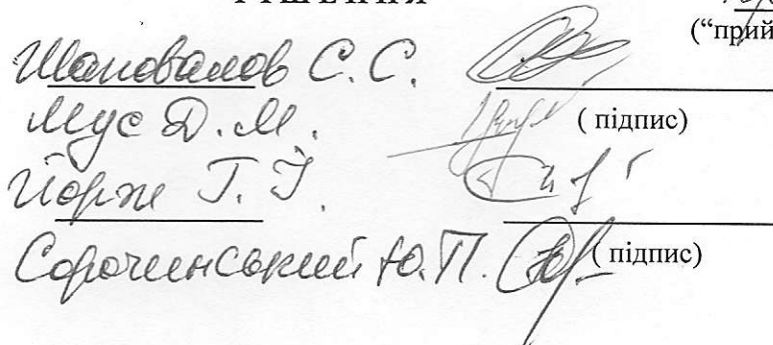 ("прий
Шаповалов С. С.
Мус Д. М. ( підпис)
Йорж Г. Й.
Сорочинський Ю. П. ( підпис)